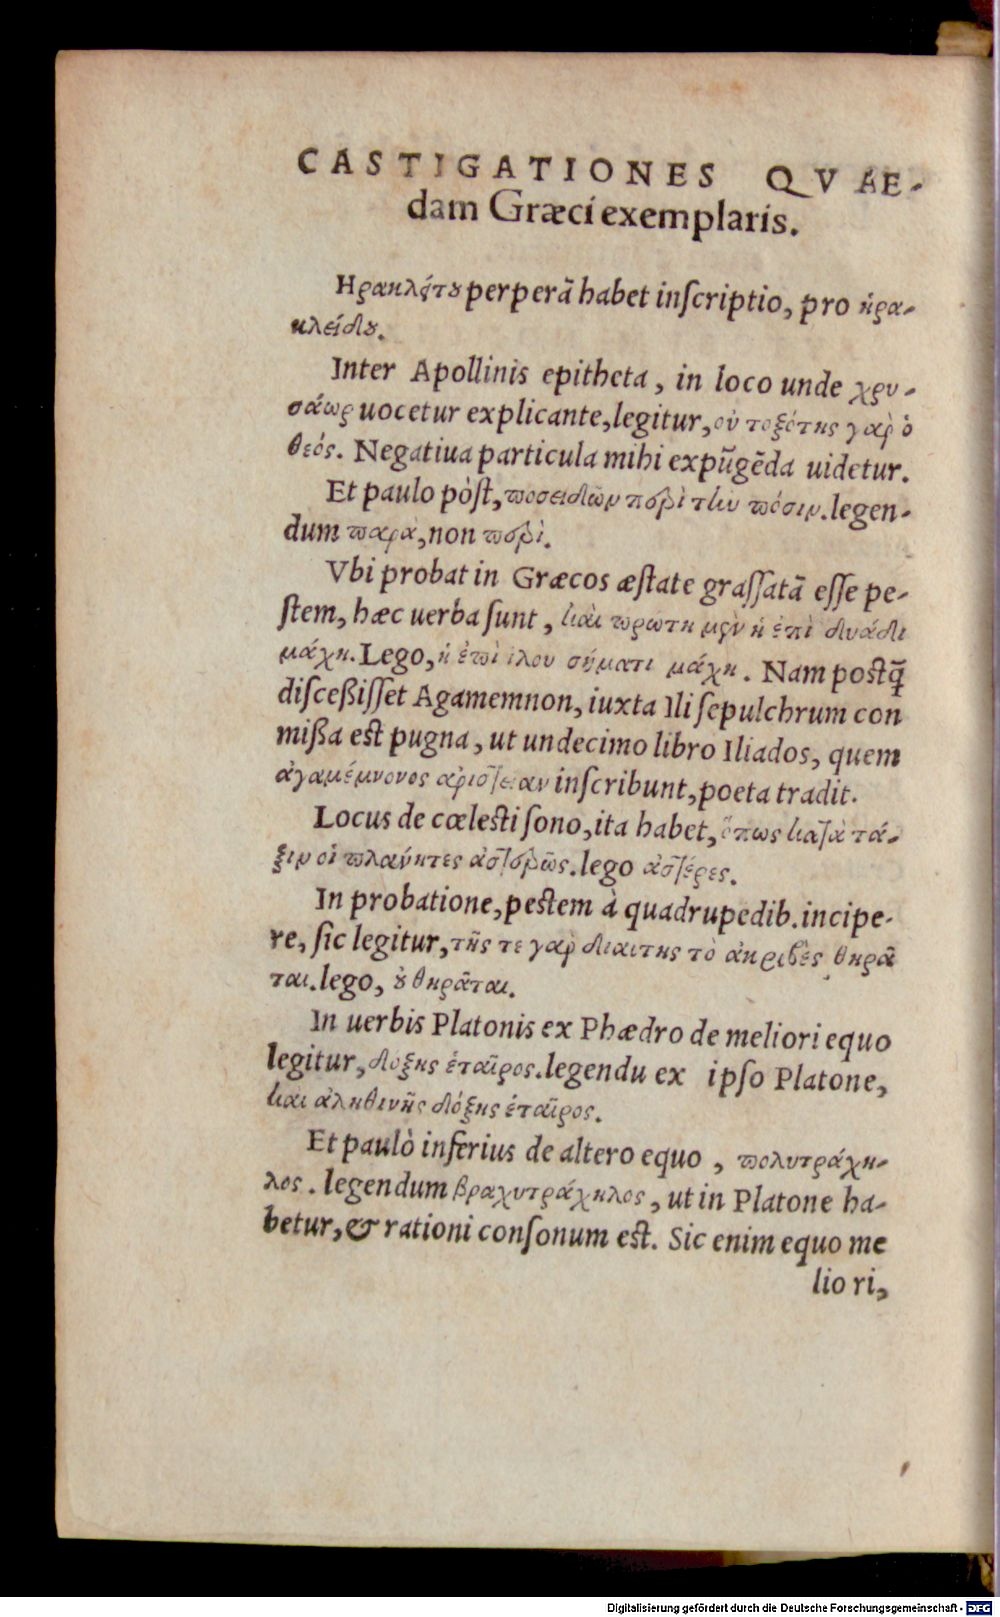 CASTIGATIONES QVAE-
dam Græci exemplaris.
Ηρακλέτου perperã habet inſcriptio, pro ἡρα-
κλείδου.
Inter Apollinis epitheta, in loco unde χρυ-
σάωρ uocetur explicante, legitur, οὐ τοξότης γαρ ὁ
θεός. Negatiua particula mihi expũgẽda uidetur.
Et paulo pòſt, ποσειδῶν περὶ τὴν πόσιν. legen-
dum παρὰ, non περὶ.
Vbi probat in Græcos æſtate graſſatã eſſe pe-
ſtem, hæc uerba ſunt, καὶ πρώτη μὲν ἡ ἐπὶ δυάδι
μάχη. Lego, ἡ ἐπὶ ἰλου σήματι μάχη. Nam poſtq̃
diſceßiſſet Agamemnon, iuxta Ili ſepulchrum con
mißa eſt pugna, ut undecimo libro Iliados, quem
ἀγαμέμνονος ἀριστείαν inſcribunt, poeta tradit.
Locus de cœleſti ſono, ita habet, ὅπως κατὰ τά-
ξιν οἱ πλανήτες ἀστερῶς. lego ἀστέρες.
In probatione, peſtem à quadrupedib. incipe-
re, ſic legitur, τῆς τε γαρ διαιτης τὸ ἀκριβὲς θηρᾶ
ται. lego, οὐ θηρᾶται.
In uerbis Platonis ex Phædro de meliori equo
legitur, δοξης ἑταῖρος. legendu ex ipſo Platone,
και ἀληθινῆς δόξης ἑταῖρος.
Et paulò inferius de altero equo, πολυτράχη-
λος. legendum βραχυτράχηλος, ut in Platone ha-
betur, & rationi conſonum eſt. Sic enim equo me
lio ri,
Digitalisierung gefördert durch die Deutsche Forschungsgemeinschaft - DFG